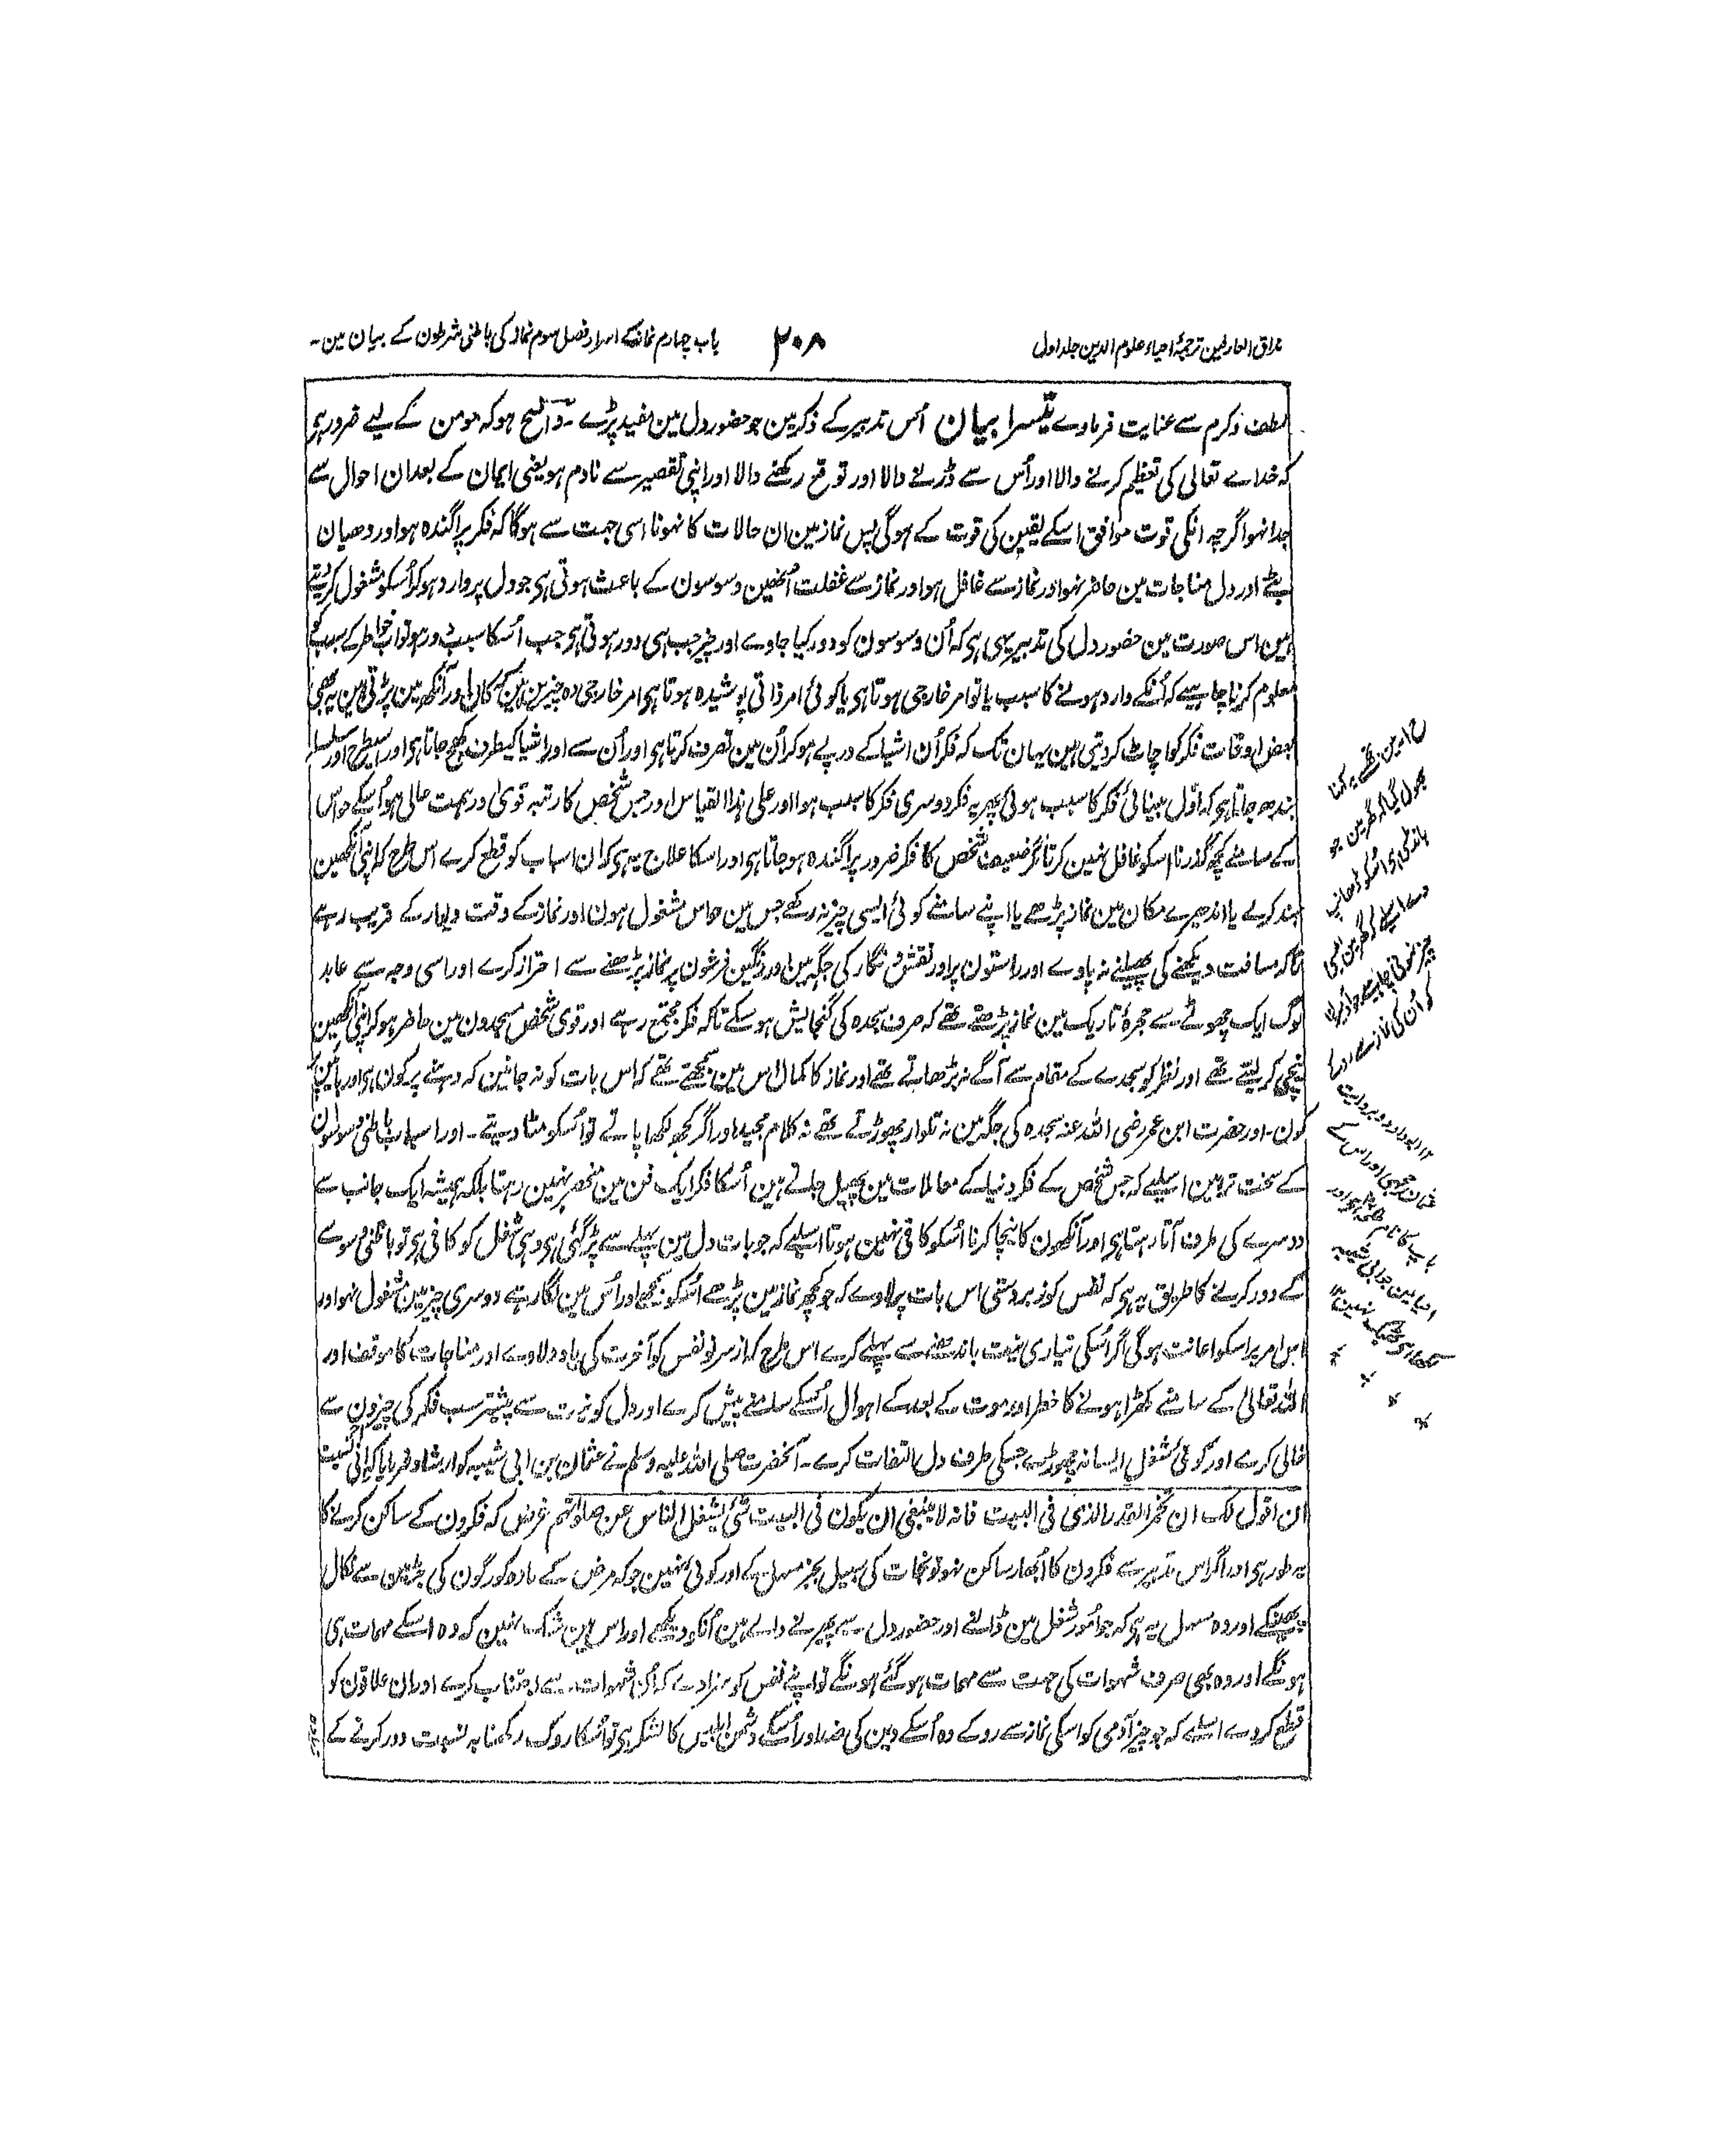 مذاق العارفین ترجمۂ احیاء علوم الدین جلد اول
۲۰۸
باب چہارم نماز کے اسرار فصل سوم نماز کی باطنی شرطون کے بیان مین ۔
لطف و کرم سے عنایت فرماوے تیسرا بیان اُس تدبیر کے ذکر مین جو حضور دل مین مفید پڑے ۔ واضح ہو کہ مومن کے لیے ضرور ہی
کہ خداے تعالی کی تعظیم کرنے والا اور اُس سے ڈرنے والا اور توقع رکھنے والا اور اپنی تقصیر سے نادم ہو یعنی ایمان کے بعد ان احوال سے
جدا نہو اگرچہ انکی قوت موافق اسکے یقین کی قوت کے ہوگی پس نماز مین ان حالات کا نہونا اسی جہت سے ہوگا کہ فکر پراگندہ ہو اور دھیان
بٹے اور دل مناجات مین حاضر نہو اور نماز سے غافل ہو اور نماز سے غفلت اُنھین وسوسون کے باعث ہوتی ہی جو دل پر وارد ہو کر اُسکو مشغول کر دیتے
ہین اس صورت مین حضور دل کی تدبیر یہی ہی کہ اُن وسوسون کو دور کیا جاوے اور چیز جب ہی دور ہوتی ہی جب اُسکا سبب دور ہو تو اب خواطر کے سبب کو
معلوم کرنا چاہیے کہ اُنکے وارد ہونے کا سبب یا تو امر خارجی ہوتا ہی یا کوئی امر ذاتی پوشیدہ ہوتا ہی امر خارجی وہ چیزین ہین کہ کان اور آنکھ مین پڑتی ہین یہ بھی
بعض اوقات فکر کو اچاٹ کر دیتی ہین یہان تک کہ فکر اُن اشیا کے درپے ہو کر اُن مین تصرف کرتا ہی اور اُن سے اور اشیا کیطرف کھچ جاتا ہی اور اسیطرح اور سلسلہ
بندھ جاتا ہی کہ اوّل بینائی فکر کا سبب ہوئی پھر یہ فکر دوسری فکر کا سبب ہوا اور علی ہذا القیاس اور جس شخص کا رتبہ قوی اور ہمت عالی ہو اُسکے حواس
کے سامنے کچھ گذرنا اسکو غافل نہین کرتا مگر ضعیف شخص کا فکر ضرور پراگندہ ہو جاتا ہی اور اسکا علاج یہ ہی کہ ان اسباب کو قطع کرے اس طرح کہ اپنی آنکھین
بند کرلے یا اندھیرے مکان مین نماز پڑھے یا اپنے سامنے کوئی ایسی چیز نہ رکھے جس مین حواس مشغول ہون اور نماز کے وقت دیوار کے قریب رہے
تاکہ مسافت دیکھنے کی پھیلنے نہ پاوے اور راستون پر اور نقش و نگار کی جگہ مین اور رنگین فرشون پر نماز پڑھنے سے احتراز کرے اور اسی وجہ سے عابد
لوگ ایک چھوٹے سے حجرۂ تاریک مین نماز پڑھتے تھے کہ صرف سجدہ کی گنجایش ہو سکے تاکہ فکر مجتمع رہے اور قوی شخص مسجدون مین حاضر ہو کر اپنی آنکھین
نیچی کر لیتے تھے اور نظر کو سجدے کے مقام سے آگے نہ بڑھاتے تھے اور نماز کا کمال اس مین سمجھتے تھے کہ اس بات کو نہ جانین کہ دہنے پر کون ہی اور بائین پر
کون ۔ اور حضرت ابن عمر رضی اللہ عنہ سجدہ کی جگہ مین نہ تلوار چھوڑتے تھے نہ کلام مجید اور اگر کچھ لکھا پاتے تو اُسکو مٹا دیتے ۔ اور اسباب باطنی وسوسون
کے سخت تر ہین اسلیے کہ جس شخص کے فکر دنیا کے معاملات مین پھیل جاتے ہین اُسکا فکر ایک فن مین منحصر نہین رہتا بلکہ ہمیشہ ایک جانب سے
دوسرے کی طرف اُڑتا رہتا ہی اور آنکھون کا نیچا کرنا اُسکو کافی نہین ہوتا اسلیے کہ جو بات دل مین پہلے سے پڑ گئی ہی وہی شغل کو کافی ہی تو باطنی وسوسے
کے دور کرنے کا طریق یہ ہی کہ نفس کو زبردستی اس بات پر لاوے کہ جو کچھ نماز مین پڑھے اُسکو سمجھے اور اُس مین لگا رہے دوسری چیز مین مشغول نہو اور
اس امر پر اسکو اعانت ہوگی اگر اُسکی تیاری نیت باندھنے سے پہلے کرے اس طرح کہ از سر نو نفس کو آخرت کی یاد دلاوے اور مناجات کا موقف اور
اللہ تعالی کے سامنے کھڑا ہونے کا خطر اور موت کے بعد کے اہوال اُسکے سامنے پیش کرے اور دل کو نیت سے پیشتر سب فکر کی چیزون سے
خالی کرے اور کوئی شغل ایسا نہ چھوڑے جسکی طرف دل التفات کرے ۔ آنحضرت صلی اللہ علیہ وسلم نے عثمان بن ابی شیبہ کو ارشاد فرمایا کہ انی نسیت
ان اقول لک ان تخمر القدر الذی فی البیت فانہ لا ینبغی ان یکون فی البیت شئ یشغل الناس عن صلوٰتہم غرض کہ فکرون کے ساکن کرنے کا
یہ طور ہی اور اگر اس تدبیر سے فکرون کا اُبھار ساکن نہو تو نجات کی سبیل بجز مسہل کے اور کوئی نہین جو کہ مرض کے مادہ کو رگون کی جڑ مین سے نکال
پھینکے اور وہ مسہل یہ ہی کہ جو اُمور شغل مین ڈالنے اور حضور دل سے پھیرنے والے ہین اُنکو دیکھے اور اس مین شک نہین کہ وہ اسکے مہمات ہی
ہونگے اور وہ بھی صرف شہوات کی جہت سے مہمات ہو گئے ہونگے تو اپنے نفس کو سزا دے کہ اُن شہوات سے اجتناب کرے اور ان علاقون کو
قطع کر دے اسلیے کہ جو چیز آدمی کو اسکی نماز سے روکے وہ اُسکے دین کی ضد اور اُسکے دشمن ابلیس کا لشکر ہی تو اُسکا روک رکھنا بہ نسبت دور کرنے کے
مین تجھے یہ کہنا
بھول گیا کہ گھر مین جو
ہانڈی ہی اُسکو ڈھانپ
دے اسلیے کہ گھر مین ایسی
چیز نہونی چاہیے جو آدمیون
کو اُن کی نماز سے روکے
۱۲ ابو داود بروایت
عثمان حجبی اور اس کے
باپ کا نام طلحہ ہی اور
احیا مین جو ابی شیبہ
لکھا ہی ٹھیک نہین ۱۲